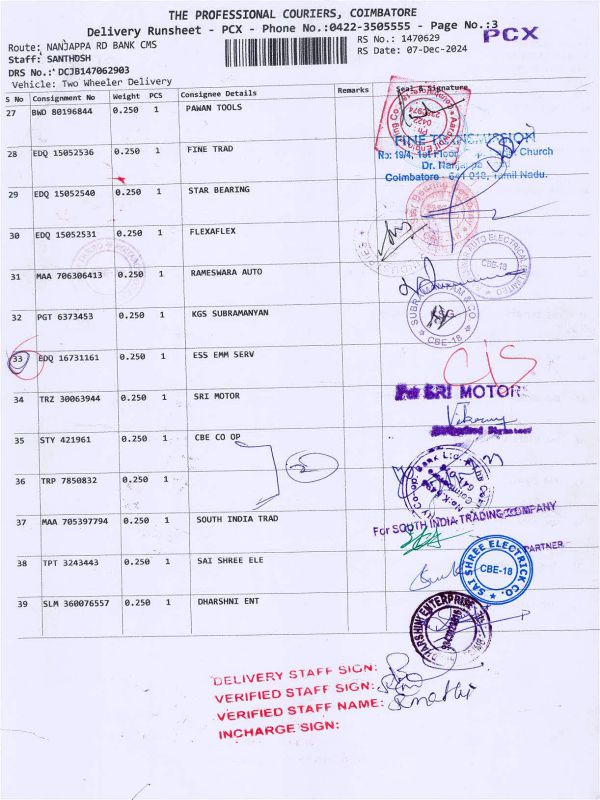 THE PROFESSIONAL COURIERS, COIMBATORE
Delivery Runsheet - PCX - Phone No.:0422-3505555 - Page No.:3
PCX
Route: NANJAPPA RD BANK CMS
RS No.: 1470629
Staff: SANTHOSH
RS Date: 07-Dec-2024
DRS No.: DCJB147062903
Vehicle: Two Wheeler Delivery
S No Consignment No Weight PCS Consignee Details Remarks Seal & Signature
27 BWD 80196844 0.250 1 PAWAN TOOLS
FINE TRANSMISSION
28 EDQ 15052536 0.250 1 FINE TRAD
No: 19/4, 1st Floor Church
Dr. Nanjappa
Coimbatore - 641 018, Tamil Nadu.
29 EDQ 15052540 0.250 1 STAR BEARING
30 EDQ 15052531 0.250 1 FLEXAFLEX
CBE-18
31 MAA 706306413 0.250 1 RAMESWARA AUTO
32 PGT 6373453 0.250 1 KGS SUBRAMANYAN
SUBRAMANYAM & CO
KSG
CBE-18
33 EDQ 16731161 0.250 1 ESS EMM SERV
CIS
34 TRZ 30063944 0.250 1 SRI MOTOR
For SRI MOTORS
35 STY 421961 0.250 1 CBE CO OP
36 TRP 7850832 0.250 1
For SOUTH INDIA TRADING COMPANY
37 MAA 705397794 0.250 1 SOUTH INDIA TRAD
PARTNER
38 TPT 3243443 0.250 1 SAI SHREE ELE
SAI SHREE ELECTRICK CO.
CBE-18
39 SLM 360076557 0.250 1 DHARSHNI ENT
DHARSHINI ENTERPRISE
DELIVERY STAFF SIGN:
VERIFIED STAFF SIGN:
VERIFIED STAFF NAME:
INCHARGE SIGN: